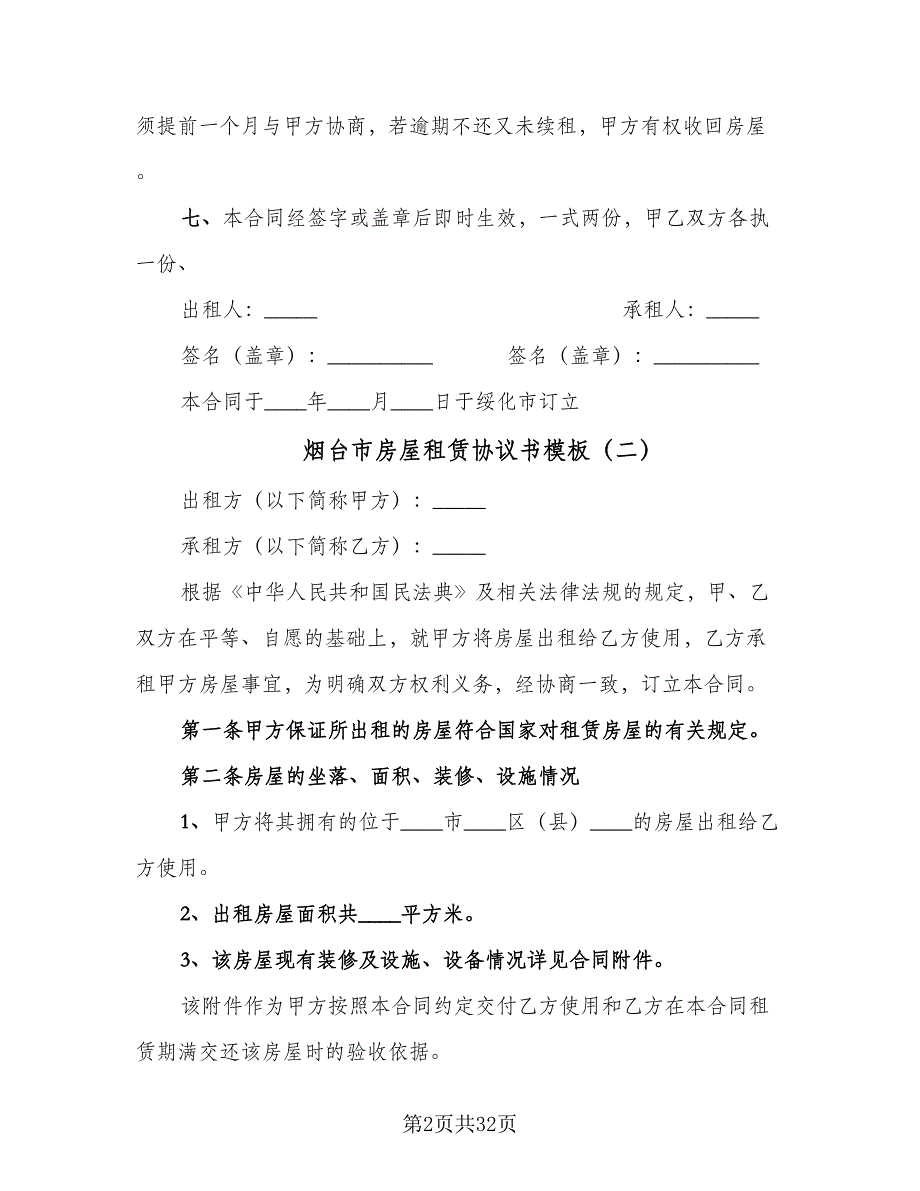 须提前一个月与甲方协商，若逾期不还又未续租，甲方有权收回房屋
。
七、本合同经签字或盖章后即时生效，一式两份，甲乙双方各执
一份、
出租人：_____ 承租人：_____
签名（盖章）：__________ 签名（盖章）：__________
本合同于____年____月____日于绥化市订立
烟台市房屋租赁协议书模板（二）
出租方（以下简称甲方）：_____
承租方（以下简称乙方）：_____
根据《中华人民共和国民法典》及相关法律法规的规定，甲、乙
双方在平等、自愿的基础上，就甲方将房屋出租给乙方使用，乙方承
租甲方房屋事宜，为明确双方权利义务，经协商一致，订立本合同。
第一条甲方保证所出租的房屋符合国家对租赁房屋的有关规定。
第二条房屋的坐落、面积、装修、设施情况
1、甲方将其拥有的位于____市____区（县）____的房屋出租给乙
方使用。
2、出租房屋面积共____平方米。
3、该房屋现有装修及设施、设备情况详见合同附件。
该附件作为甲方按照本合同约定交付乙方使用和乙方在本合同租
赁期满交还该房屋时的验收依据。
第2页共32页